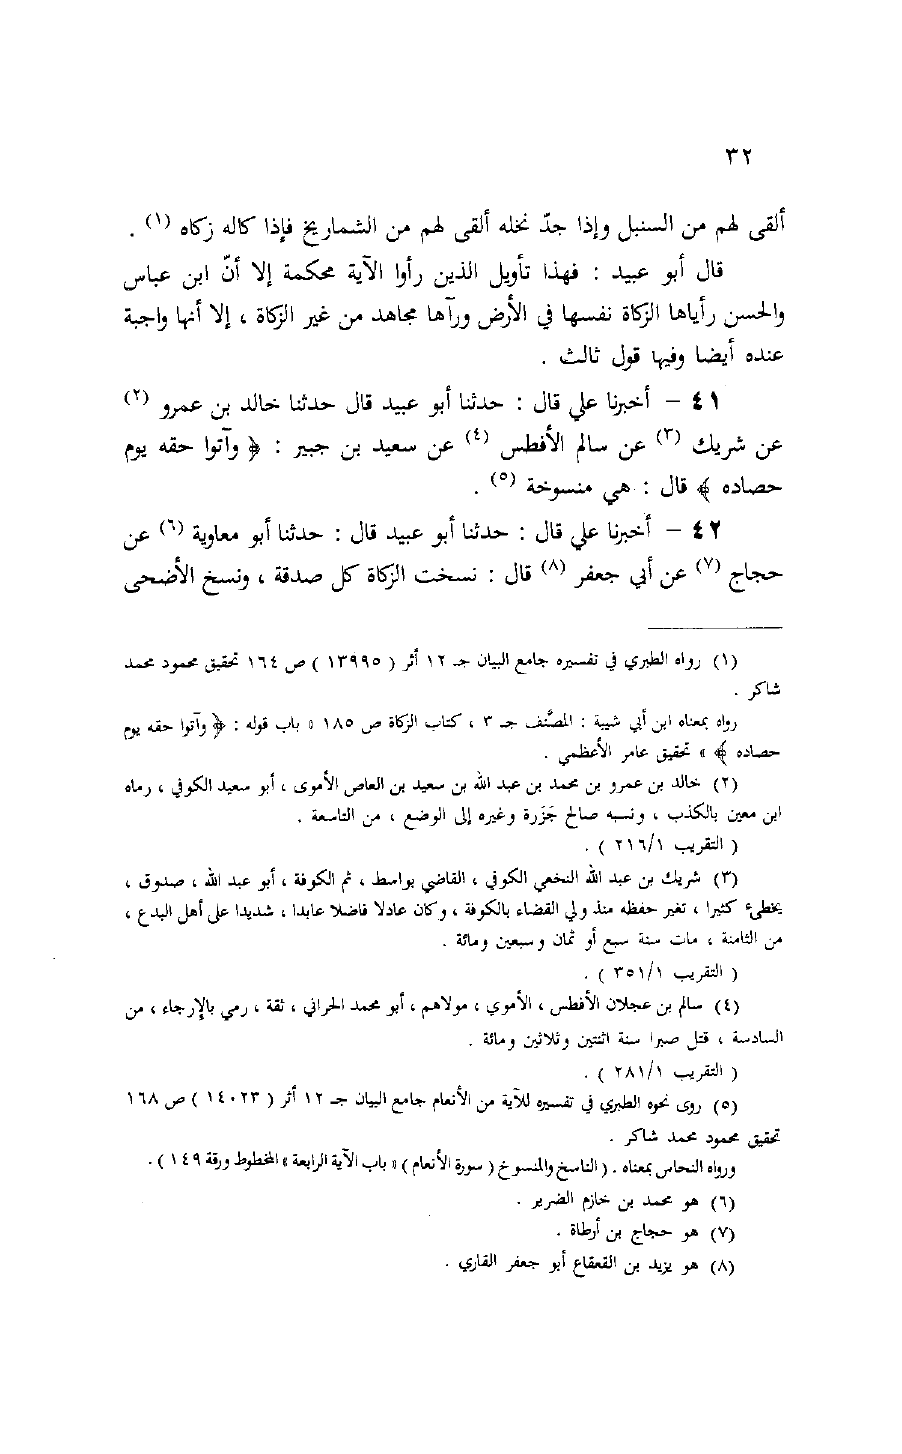 ٣٢
ألقى لهم من السنبل وإذا جدّ نخله ألقى لهم من الشماريخ فإذا كاله زكاه (١) .
قال أبو عبيد : فهذا تأويل الذين رأوا الآية محكمة إلا أنّ ابن عباس
والحسن رأياها الزكاة نفسها في الأرض ورآها مجاهد من غير الزكاة ، إلا أنها واجبة
عنده أيضا وفيها قول ثالث .
٤١ – أخبرنا علي قال : حدثنا أبو عبيد قال حدثنا خالد بن عمرو (٢)
عن شريك (٣) عن سالم الأفطس (٤) عن سعيد بن جبير : ﴿ وآتوا حقه يوم
حصاده ﴾ قال : هي منسوخة (٥) .
٤٢ – أخبرنا علي قال : حدثنا أبو عبيد قال : حدثنا أبو معاوية (٦) عن
حجاج (٧) عن أبي جعفر (٨) قال : نسخت الزكاة كل صدقة ، ونسخ الأضحى
(١) رواه الطبري في تفسيره جامع البيان جـ ١٢ أثر ( ١٣٩٩٥ ) ص ١٦٤ تحقيق محمود محمد
شاكر .
رواه بمعناه ابن أبي شيبة : المصَّنف جـ ٣ ، كتاب الزكاة ص ١٨٥ « باب قوله : ﴿ وآتوا حقه يوم
حصاده ﴾ » تحقيق عامر الأعظمي .
(٢) خالد بن عمرو بن محمد بن عبد الله بن سعيد بن العاص الأموى ، أبو سعيد الكوفي ، رماه
ابن معين بالكذب ، ونسبه صالح جَزَرة وغيره إلى الوضع ، من التاسعة .
( التقريب ٢١٦/١ ) .
(٣) شريك بن عبد الله النخعي الكوفي ، القاضي بواسط ، ثم الكوفة ، أبو عبد الله ، صدوق ،
يخطىء كثيرا ، تغير حفظه منذ ولي القضاء بالكوفة ، وكان عادلا فاضلا عابدا ، شديدا على أهل البدع ،
من الثامنة ، مات سنة سبع أو ثمان وسبعين ومائة .
( التقريب ٣٥١/١ ) .
(٤) سالم بن عجلان الأفطس ، الأموي ، مولاهم ، أبو محمد الحراني ، ثقة ، رمي بالإرجاء ، من
السادسة ، قتل صبرا سنة اثنتين وثلاثين ومائة .
( التقريب ٢٨١/١ ) .
(٥) روى نحوه الطبري في تفسيره للآية من الأنعام جامع البيان جـ ١٢ أثر ( ١٤٠٢٣ ) ص ١٦٨
تحقيق محمود محمد شاكر .
ورواه النحاس بمعناه . ( الناسخ والمنسوخ ( سورة الأنعام ) « باب الآية الرابعة » المخطوط ورقة ١٤٩ ) .
(٦) هو محمد بن خازم الضرير .
(٧) هو حجاج بن أرطاة .
(٨) هو يزيد بن القعقاع أبو جعفر القاري .